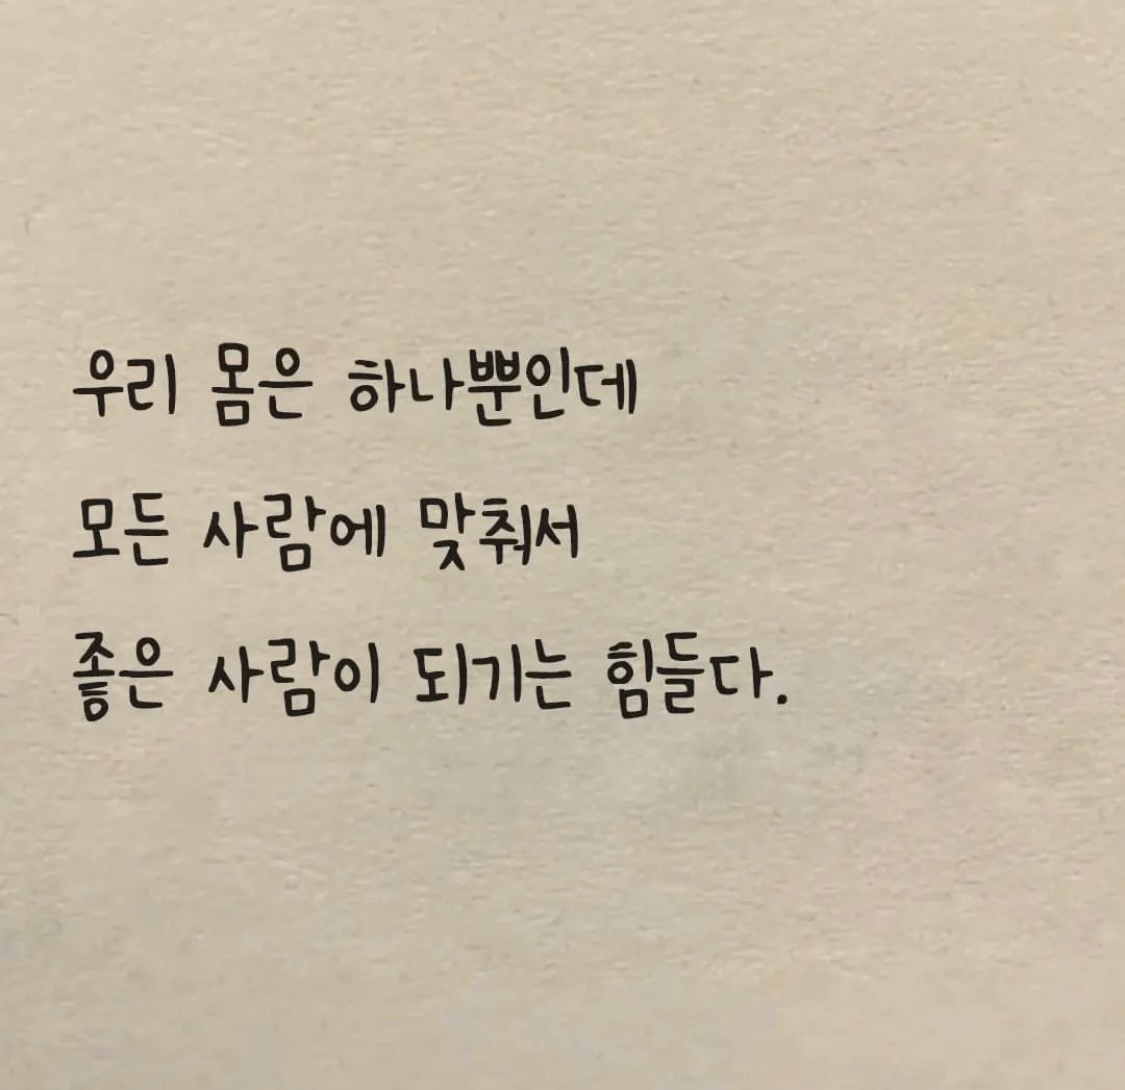 우리 몸은 하나뿐인데
모든 사람에 맞춰서
좋은 사람이 되기는 힘들다.